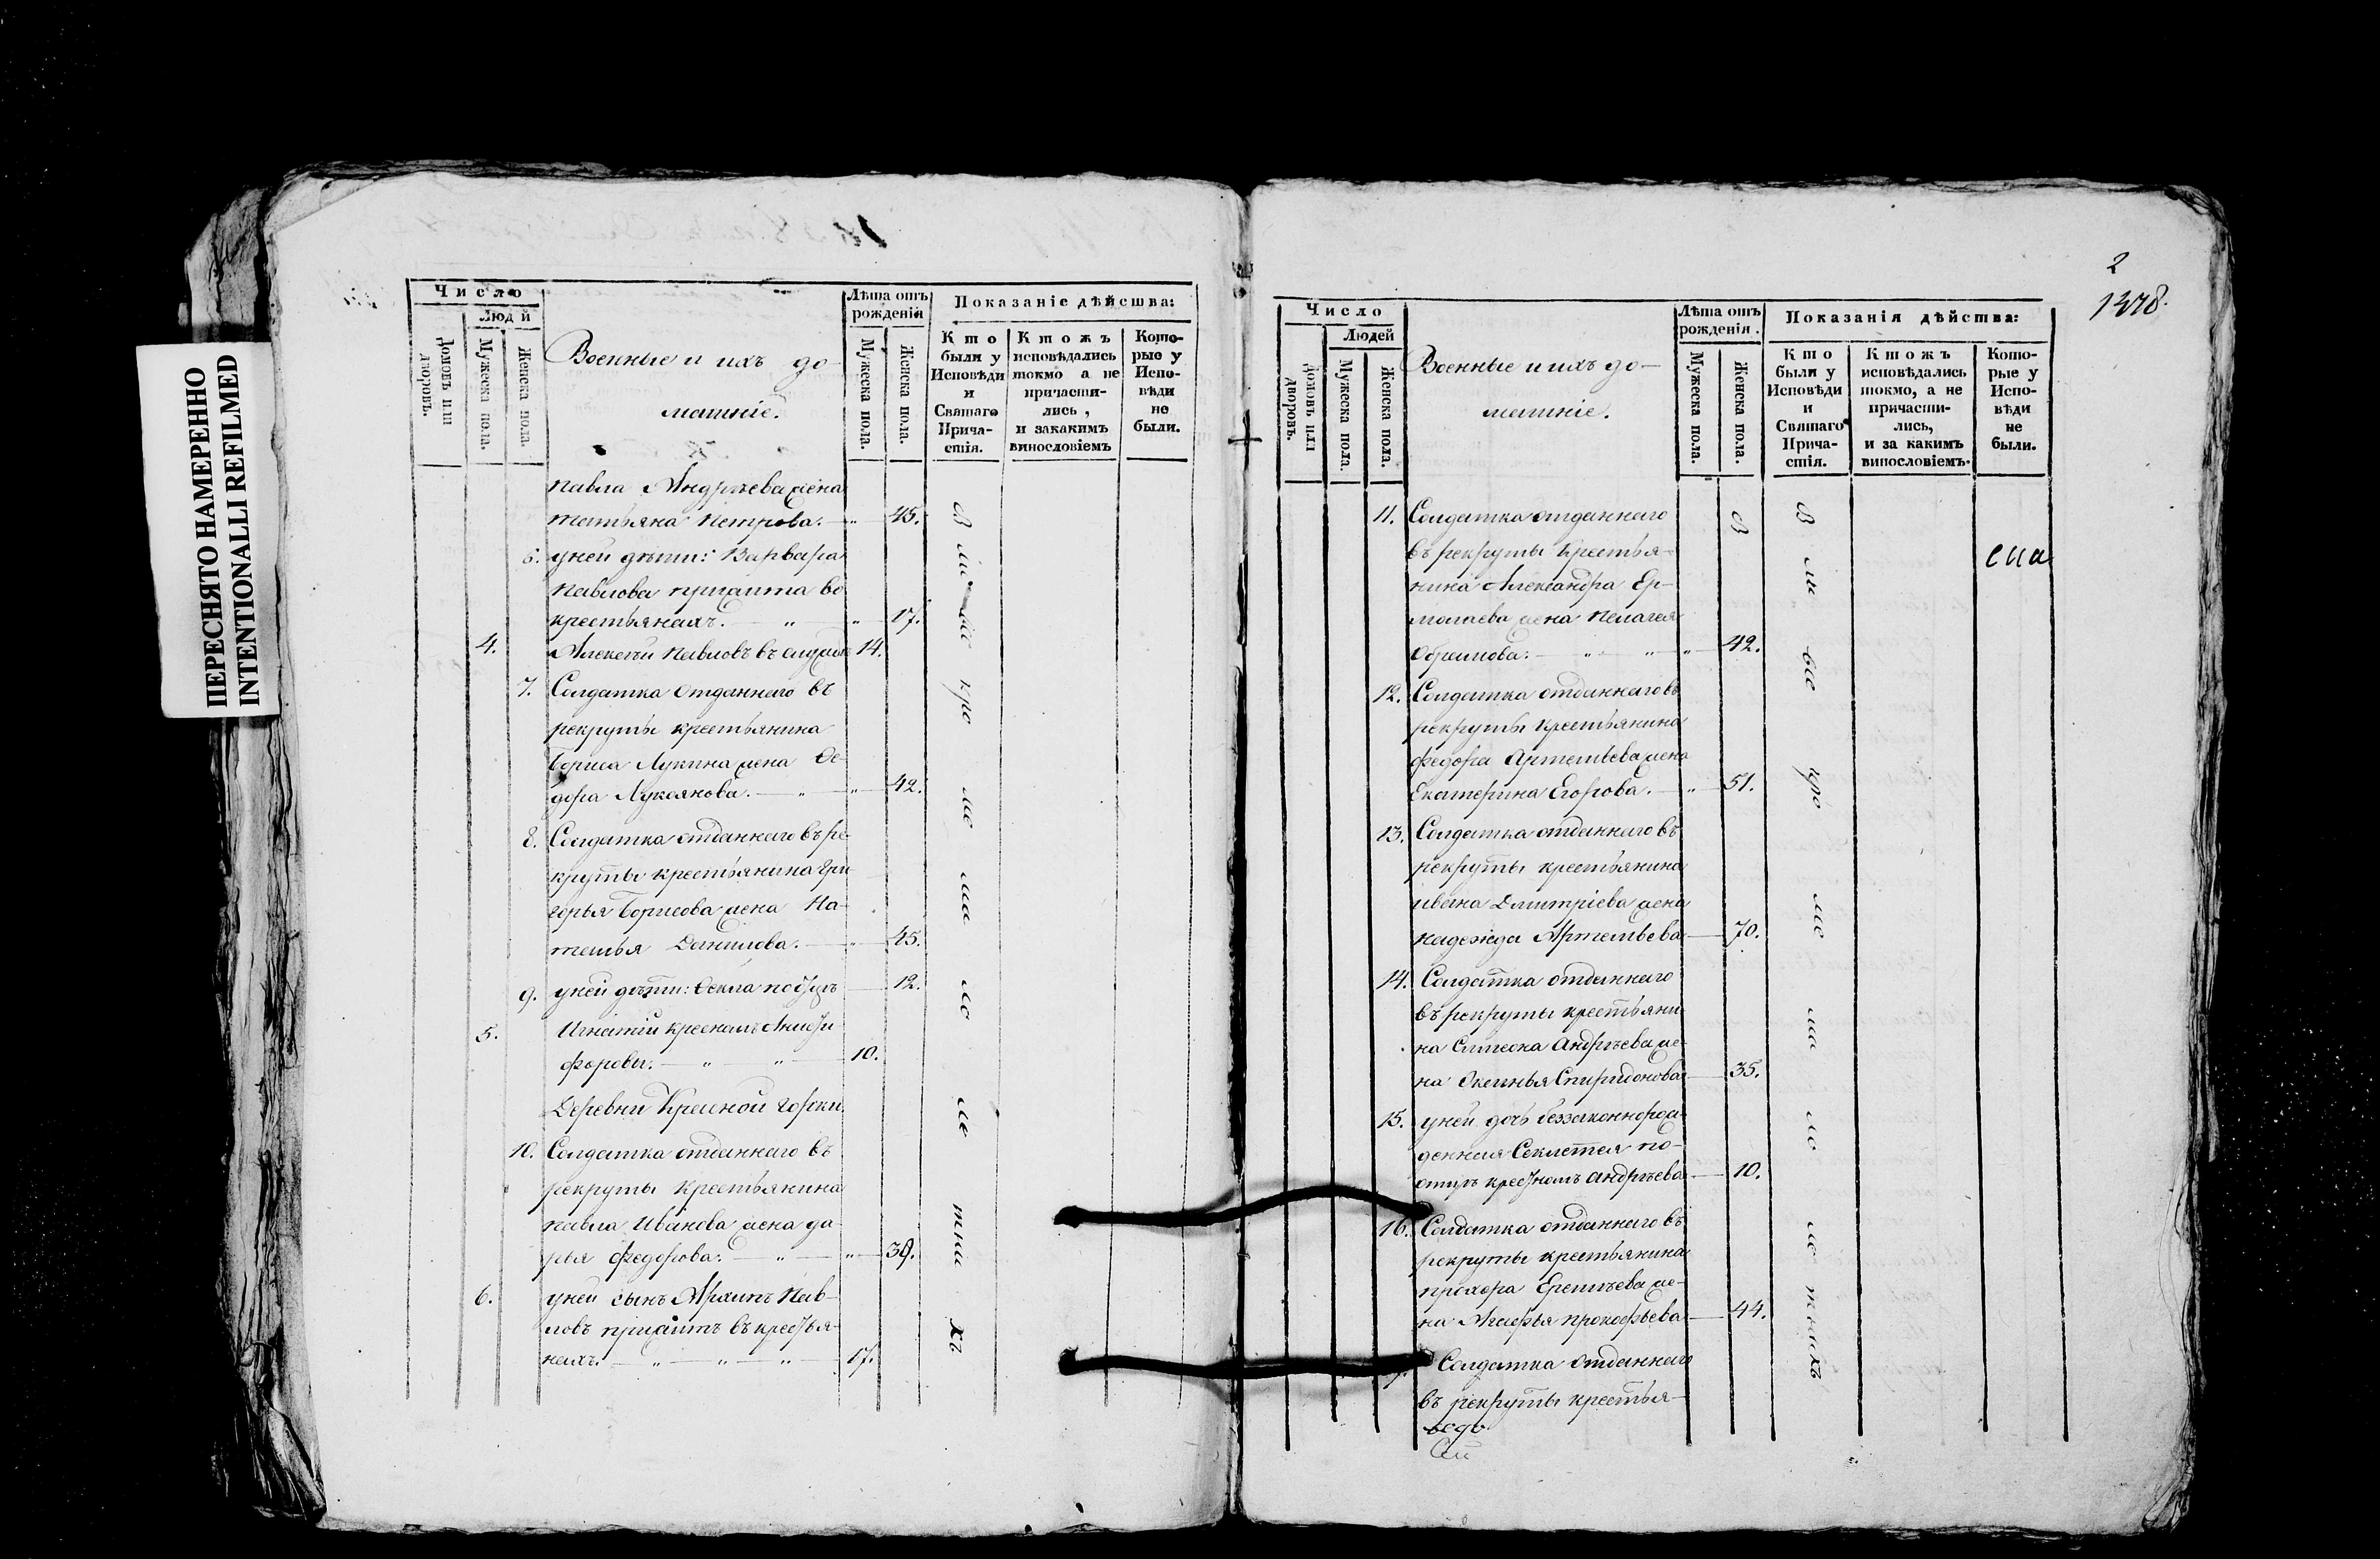 ПЕРЕСНЯТО НАМЕРЕННО
INTENTIONALLI REFILMED
Число
Людй
Домовъ или дворовъ.
Мужеска пола.
Женска пола.
Военные и ихъ до-
машніе.
Лѣта отъ
рожденія
Мужеска пола.
Женска пола.
Показаніе дѣйства:
Кто
были у
Исповѣди
и
Святаго
Прича-
стія.
Ктожъ
исповѣдались
токмо а не
причасти-
лись,
и закакимъ
винословіемъ
Кото-
рые у
Испо-
вѣди
не
были.
павла Андрѣева жена
татьяна петрова. 45.
6. унеи дѣти: Варвара
павлова прижита во
крестьянахъ. 17.
4. Алексѣи павловъ въ 14.
7. Солдатка отданнаго въ
рекруты крестьянина
Бориса Лукина жена Ѳе-
дора Лукоянова. 42.
8. Солдатка отданнаго въ ре-
круты крестьянина гри
горья Борисова жена На-
талья Данилова. 45.
9. унеи дѣти: Ѳекла 12.
5. Игнатіи
10.
Деревни Красной горки
10. Солдатка отданнаго въ
рекруты крестьянина
павла Иванова жена да-
рья федорова. 39.
6. унеи сынъ Архипъ Пав-
ловъ прижитъ въ крестья-
нахъ. 17.
2
1378.
Число
Людей
Домовъ или дворовъ.
Мужеска пола.
Женска пола.
Военные и ихъ до-
машніе.
Лѣта отъ
рожденія.
Мужеска пола.
Женска пола.
Показанія дѣйства:
Кто
были у
Исповѣди
и
Святаго
Прича-
стія.
Ктожъ
исповѣдались
токмо, а не
причасти-
лись,
и за какимъ
винословіемъ.
Кото-
рые у
Испо-
вѣди
не
были.
11. Солдатка отданнаго
въ рекруты крестья-
нина Александра Ер-
молаева жена пелагея
Абрамова. 42.
12. Солдатка отданнаго въ
рекруты крестьянина
федора Артемьева жена
Екатерина Егорова. 51.
13. Солдатка отданнаго въ
рекруты крестьянина
ивана Дмитріева жена
надежда Артемьева 70.
14. Солдатка отданнаго
въ рекруты крестьяни
на Симеона Андрѣева же-
на Аксинья Спиридонова 35.
15. унеи дочь беззаконнорож-
денная Секлетея по-
отцѣ крестномъ андрѣева 10.
16. Солдатка отданнаго въ
рекруты крестьянина
прохора Еремѣева же-
на Агафья прокофьева 44.
Солдатка отданнаго
въ рекруты крестья-